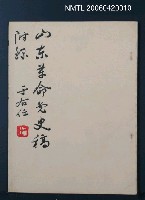 NMTL 20060420010
山东革命党史稿
附錄
于右任